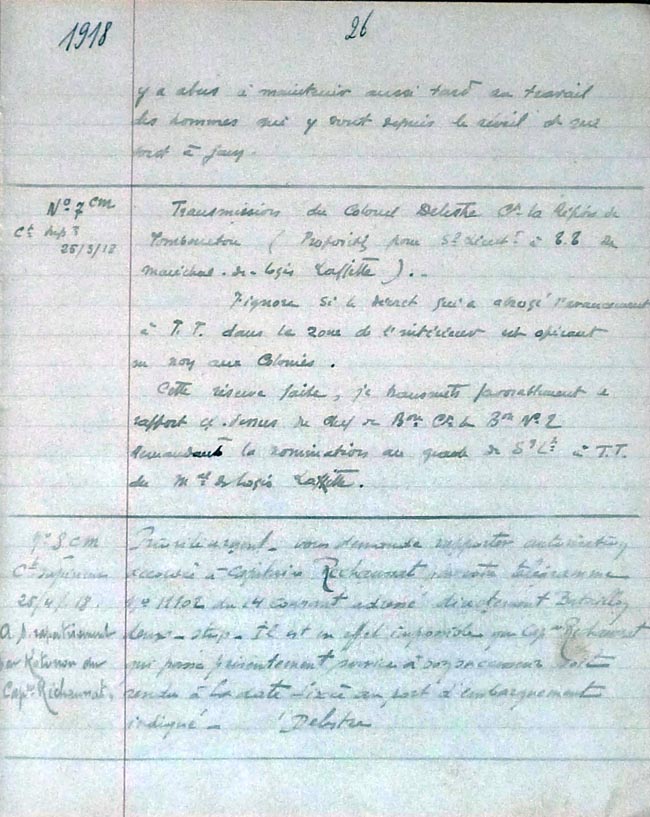 1918
26
y a abus à maintenir aussi tard au travail
des hommes qui y sont depuis le réveil et qui
sont à jeun.
No 7 cm
Ct Sup r
25/3/18
Transmission du Colonel Delestre Ct la Région de
Tombouctou ( Proposition pour S/Lieutt à T.T du
maréchal-de-logis Laffitte ).
J'ignore si le décret qui a abrogé l'avancement
à T.T. dans la zone de l'intérieur est opérant
ou non aux Colonies.
Cette réserve faite, je transmets favorablement le
rapport ci-dessus du Chef de Bon Ct le Bon No 2
demandant la nomination au grade de S/Lt à T.T.
du Mal des Logis Laffitte.
No 8 cm
Ct Supérieur
25/4/18.
a. s. rapatriement
par du
Capne Richaunat.
Priorité urgent - vous demande rapporter autorisation
accordée à Capitaine Richaunat par votre télégramme
no 1902 du 14 courant adressé directement
deux - stop - Il est en effet impossible que Capne Richaunat
qui passe présentement service à son successeur soit
rendu à la date fixée au port d'embarquement
indiqué - Delestre